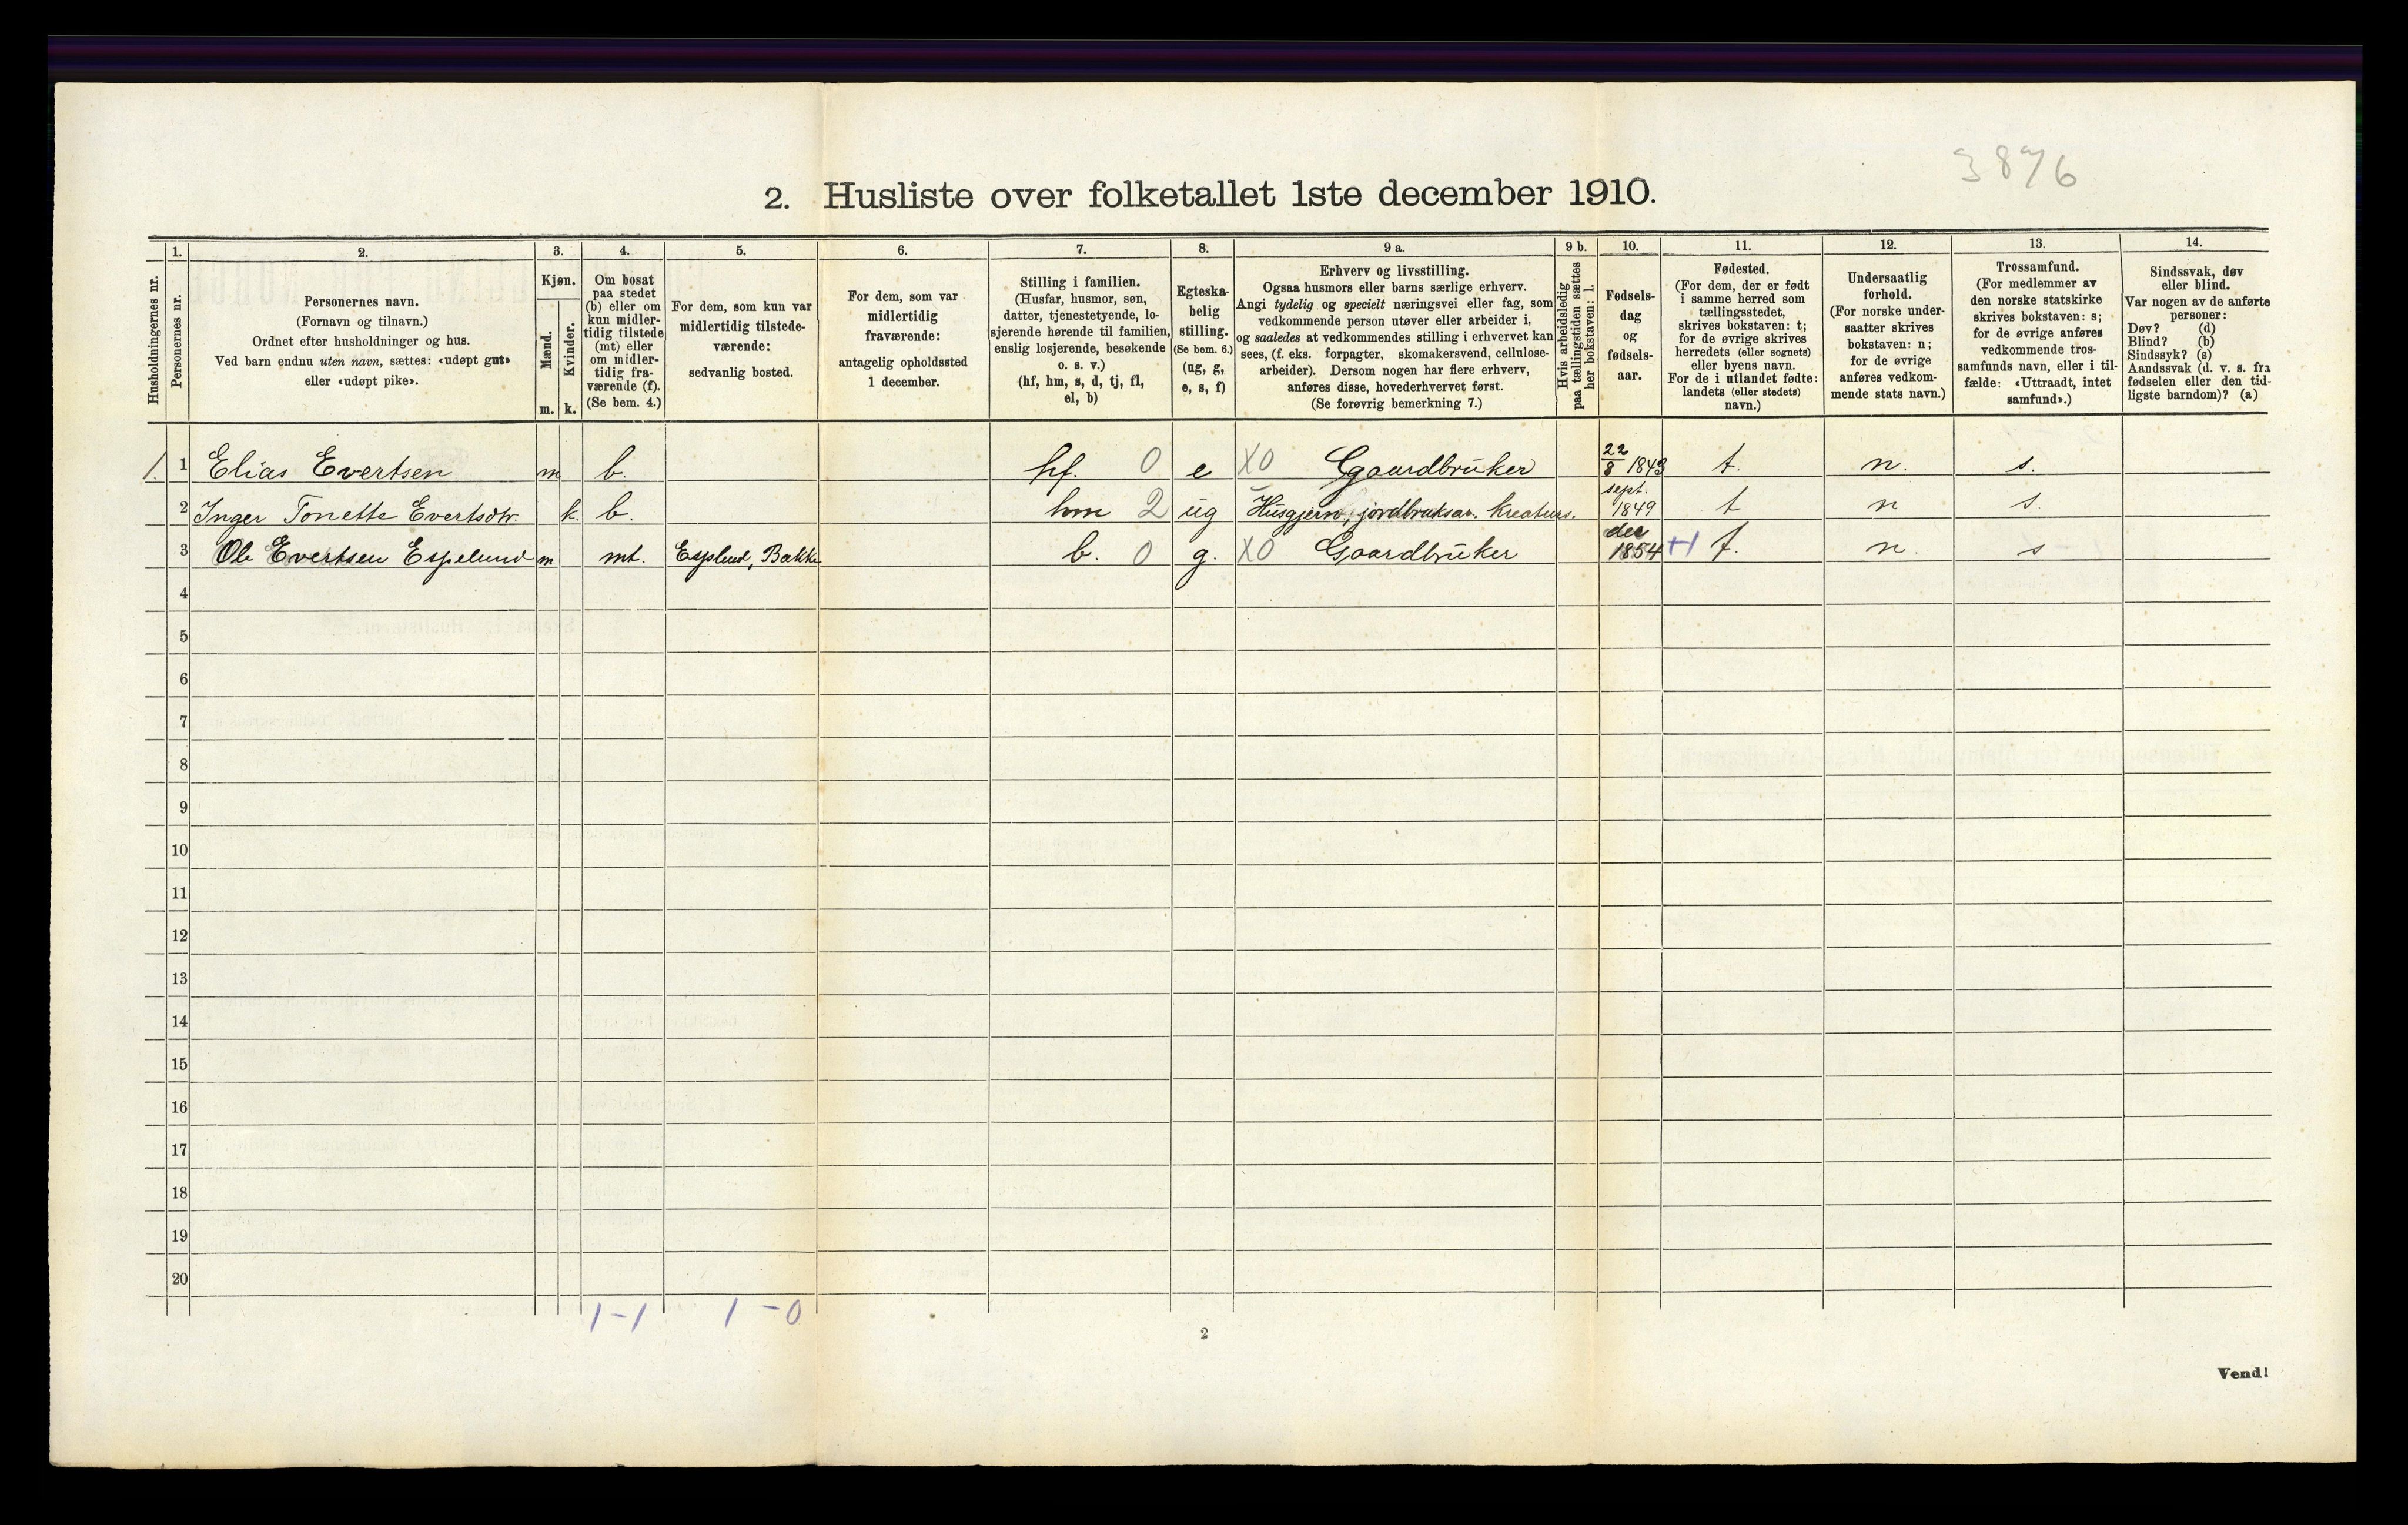 3876
2. Husliste over folketallet 1ste december 1910.
Husholdningernes nr.
1.
Personernes nr.
2.
Personernes navn.
(Fornavn og tilnavn.)
Ordnet efter husholdninger og hus.
Ved barn endnu uten navn, sættes: «udøpt gut»
eller «udøpt pike».
3.
Kjøn.
Mænd.
m.
Kvinder.
k.
4.
Om bosat
paa stedet
(b) eller om
kun midler-
tidig tilstede
(mt) eller
om midler-
tidig fra-
værende (f).
(Se bem. 4.)
5.
For dem, som kun var
midlertidig tilstede-
værende:
sedvanlig bosted.
6.
For dem, som var
midlertidig
fraværende:
antagelig opholdssted
1 december.
7.
Stilling i familien.
(Husfar, husmor, søn,
datter, tjenestetyende, lo-
sjerende hørende til familien,
enslig losjerende, besøkende
o. s. v.)
(hf, hm, s, d, tj, fl,
el, b)
8.
Egteska-
belig
stilling.
(Se bem. 6.)
(ug, g,
e, s, f)
9 a.
Erhverv og livsstilling.
Ogsaa husmors eller barns særlige erhverv.
Angi tydelig og specielt næringsvei eller fag, som
vedkommende person utøver eller arbeider i,
og saaledes at vedkommendes stilling i erhvervet kan
sees, (f. eks. forpagter, skomakersvend, cellulose-
arbeider). Dersom nogen har flere erhverv,
anføres disse, hovederhvervet først.
(Se forøvrig bemerkning 7.)
9 b.
Hvis arbeidsledig
paa tællingstiden sættes
her bokstaven: l.
10.
Fødsels-
dag
og
fødsels-
aar.
11.
Fødested.
(For dem, der er født
i samme herred som
tællingsstedet,
skrives bokstaven: t;
for de øvrige skrives
herredets (eller sognets)
eller byens navn.
For de i utlandet fødte:
landets (eller stedets)
navn.)
12.
Undersaatlig
forhold.
(For norske under-
saatter skrives
bokstaven: n;
for de øvrige
anføres vedkom-
mende stats navn.)
13.
Trossamfund.
(For medlemmer av
den norske statskirke
skrives bokstaven: s;
for de øvrige anføres
vedkommende tros-
samfunds navn, eller i til-
fælde: «Uttraadt, intet
samfund».)
14.
Sindssvak, døv
eller blind.
Var nogen av de anførte
personer:
Døv? (d)
Blind? (b)
Sindssyk? (s)
Aandssvak (d. v. s. fra
fødselen eller den tid-
ligste barndom)? (a)
1. 1 Elias Evertsen m b. hf. 0 e X0 Gaardbruker 22/8 1843 t. n. s.
2 Inger Tonette Evertsdtr. k. b. hm 2 ug Husgjern., jordbruksar. kreaturs. sept. 1849 t n s.
3 Ole Evertsen Espelund m mt. Esplund, Bakke b. 0 g. X0 Gaardbruker 1854 +1 t. n. s
4
5
6
7
8
9
10
11
12
13
14
15
16
17
18
19
20
1-1 1-0
2
Vend!